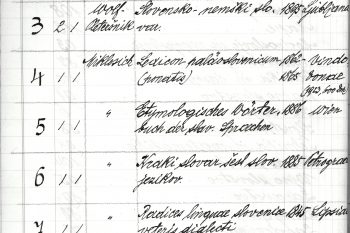 Wolf. Slovensko-nemški slo- 1895 Ljubljana
3 2 1 Pleteršnik var.
4 1 1 Miklosich Lexicon palaeoslovenicum 1862- Vindo-
1865 bonae
5 1 1 " Etymologisches Wörter- 1886 Wien
buch der slav. Sprachen
6 1 1 " Kratki slovar šest slov. 1885 Petrograd
jezikov.
7 1 1 " Radices linguae slovenicae 1845 Lipsiae
veteris dialecti